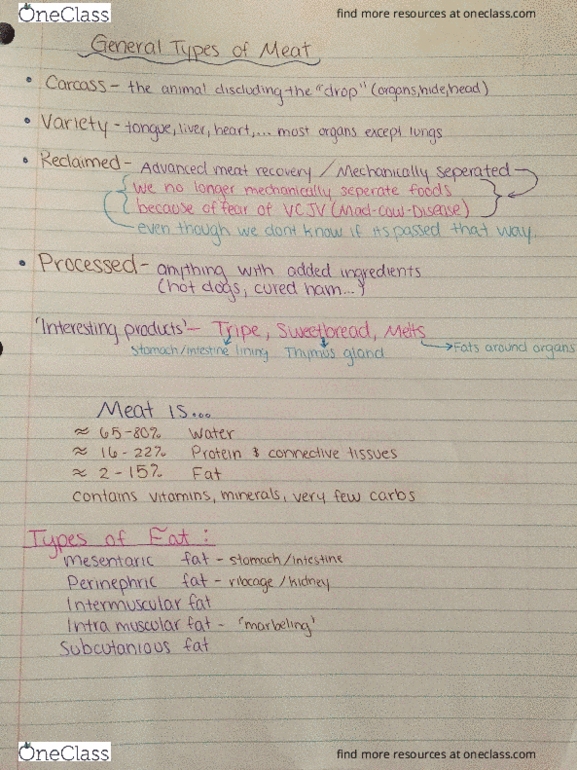 OneClass
find more resources at oneclass.com
General Types of Meat
• Carcass - the animal discluding the "drop" (organs, hide, head)
• Variety - tongue, liver, heart,... most organs except lungs
• Reclaimed - Advanced meat recovery / Mechanically seperated
we no longer mechanically seperate foods
because of fear of VCJV (Mad-Cow-Disease)
even though we dont know if its passed that way.
• Processed - anything with added ingredients
(hot dogs, cured ham...)
'Interesting products' - Tripe, Sweetbread, Melts
Stomach/intestine lining Thymus gland → Fats around organs
Meat is...
≈ 65-80% Water
≈ 16-22% Protein & connective tissues
≈ 2-15% Fat
contains vitamins, minerals, very few carbs
Types of Fat:
Mesentaric fat - stomach/intestine
Perinephric fat - ribcage/kidney
Intermuscular fat
Intra muscular fat - 'marbeling'
Subcutanious fat
OneClass
find more resources at oneclass.com